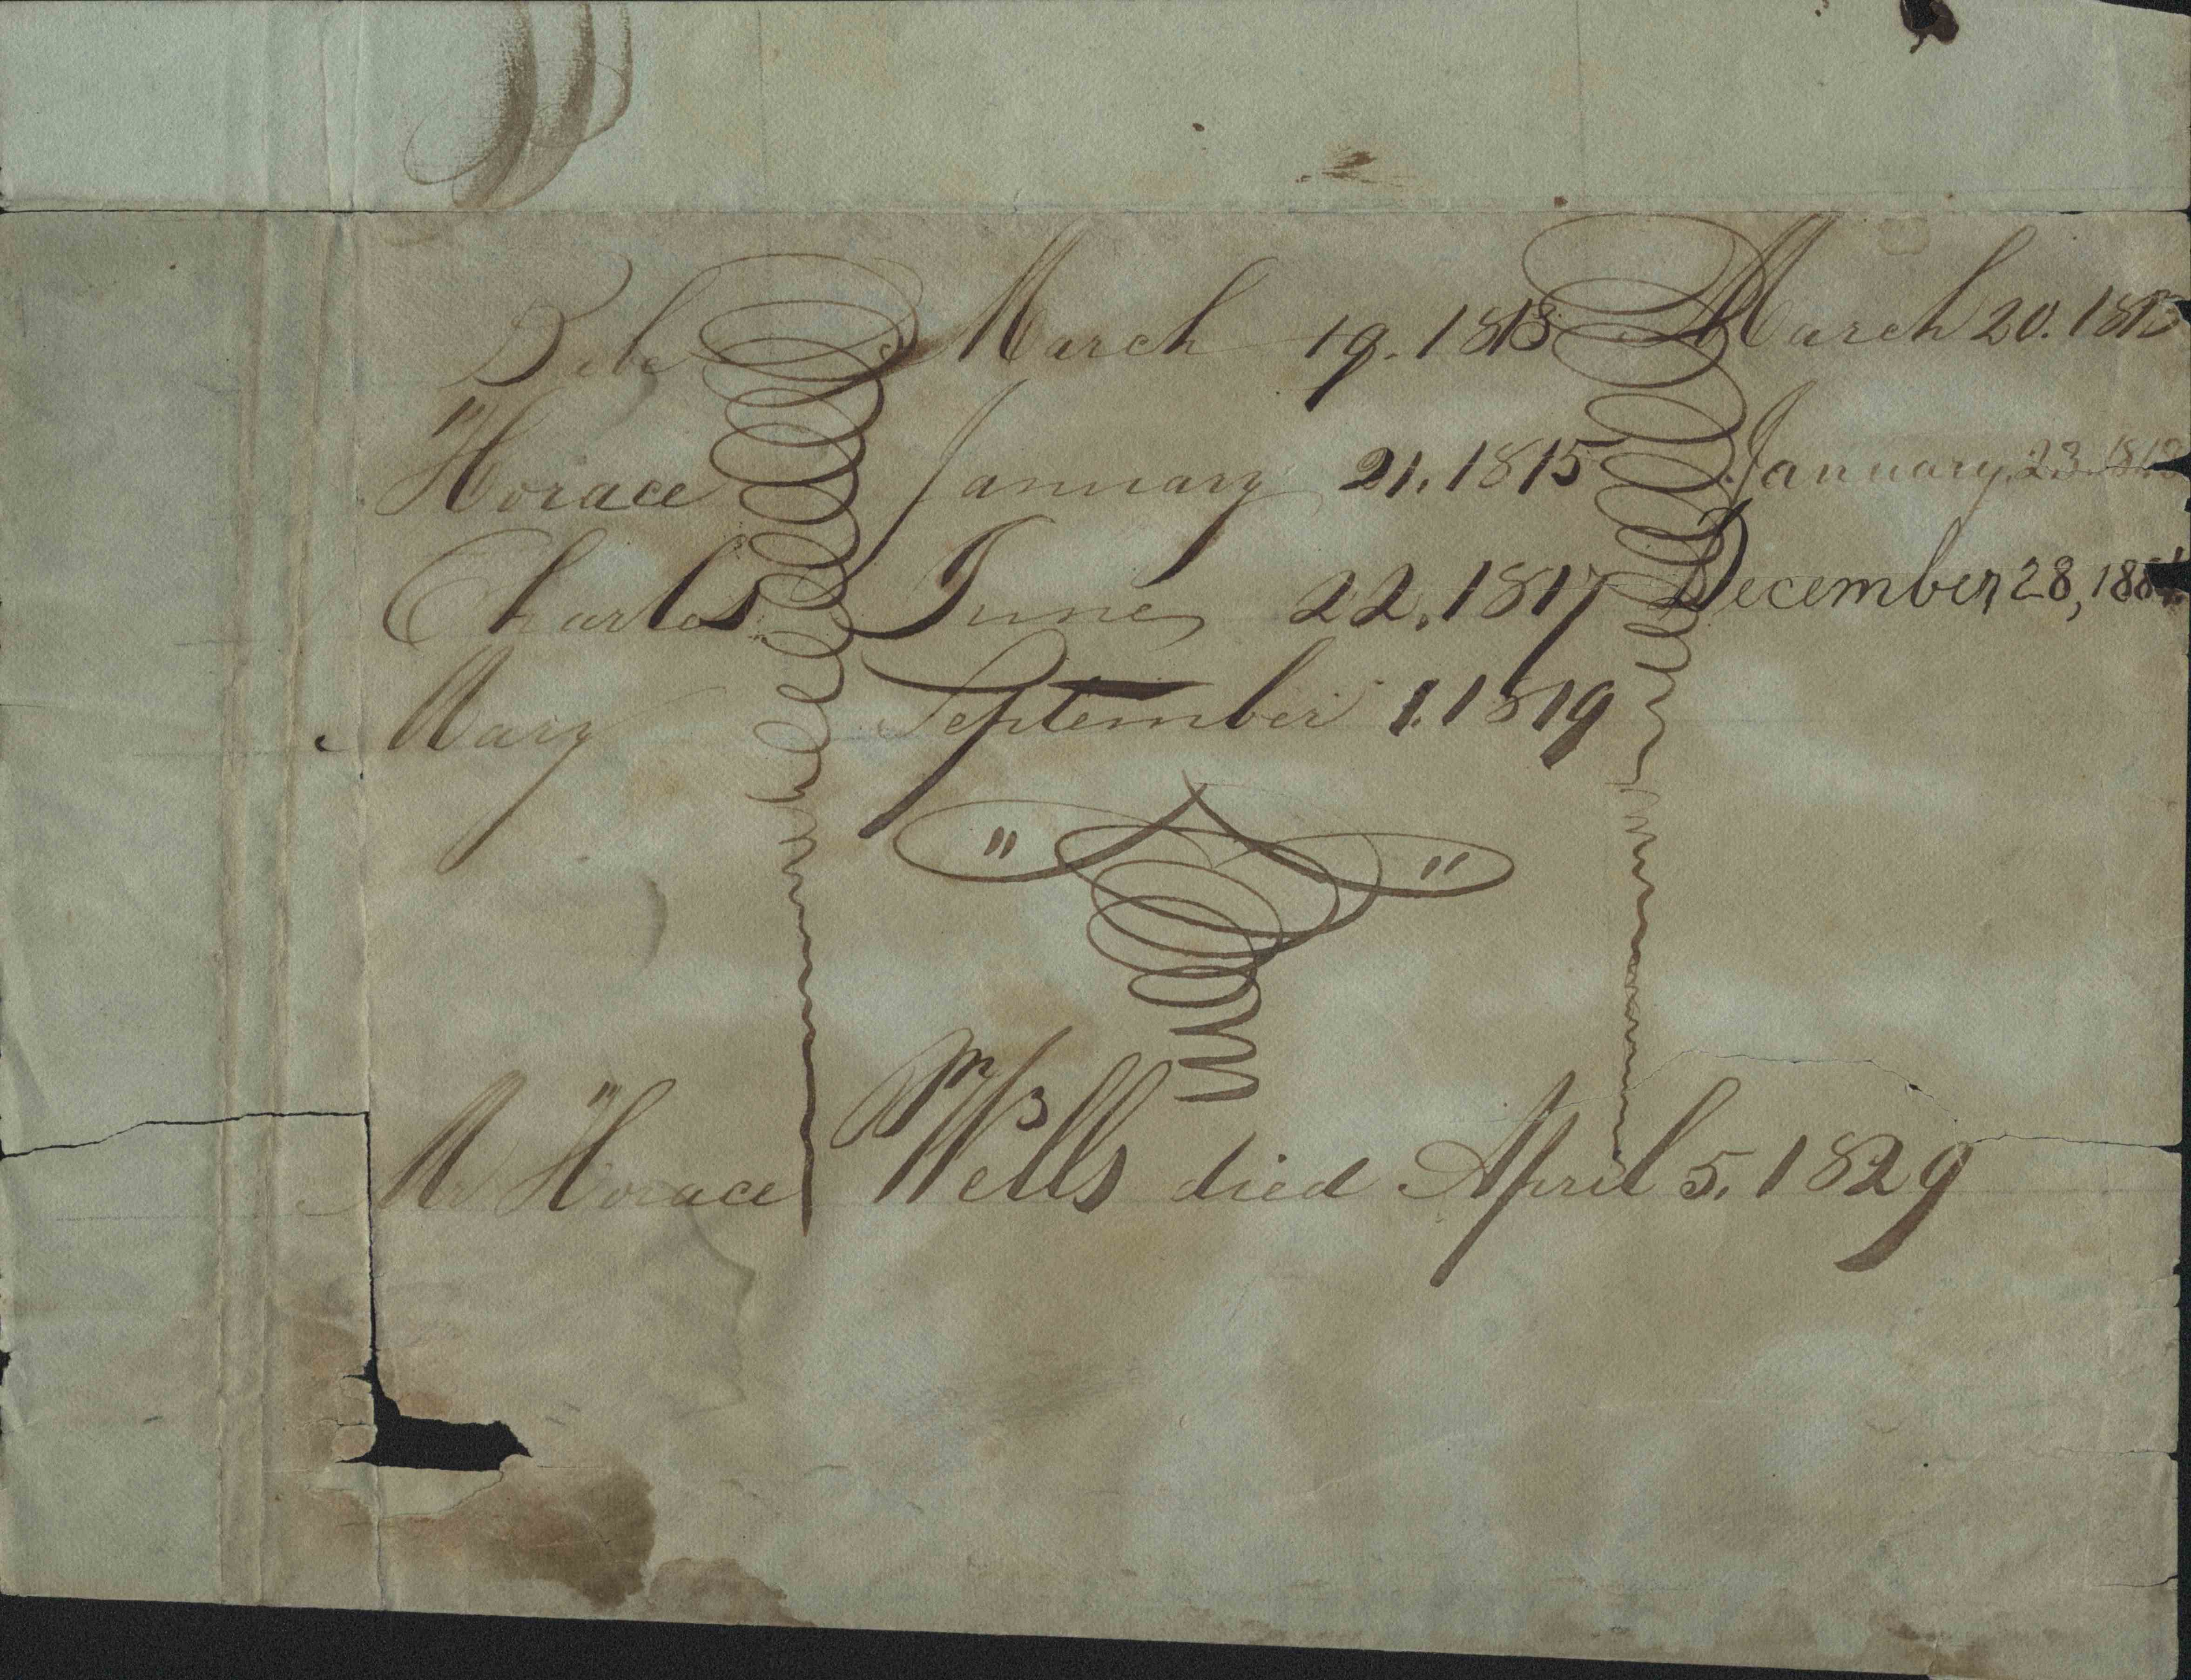 Bebe March 19. 1813 March 20. 1813
Horace January 21. 1815 January 23. 18
Charles June 22. 1817 December 28, 188
Mary September 1. 1819
Mr Horace Wells died April 5. 1829